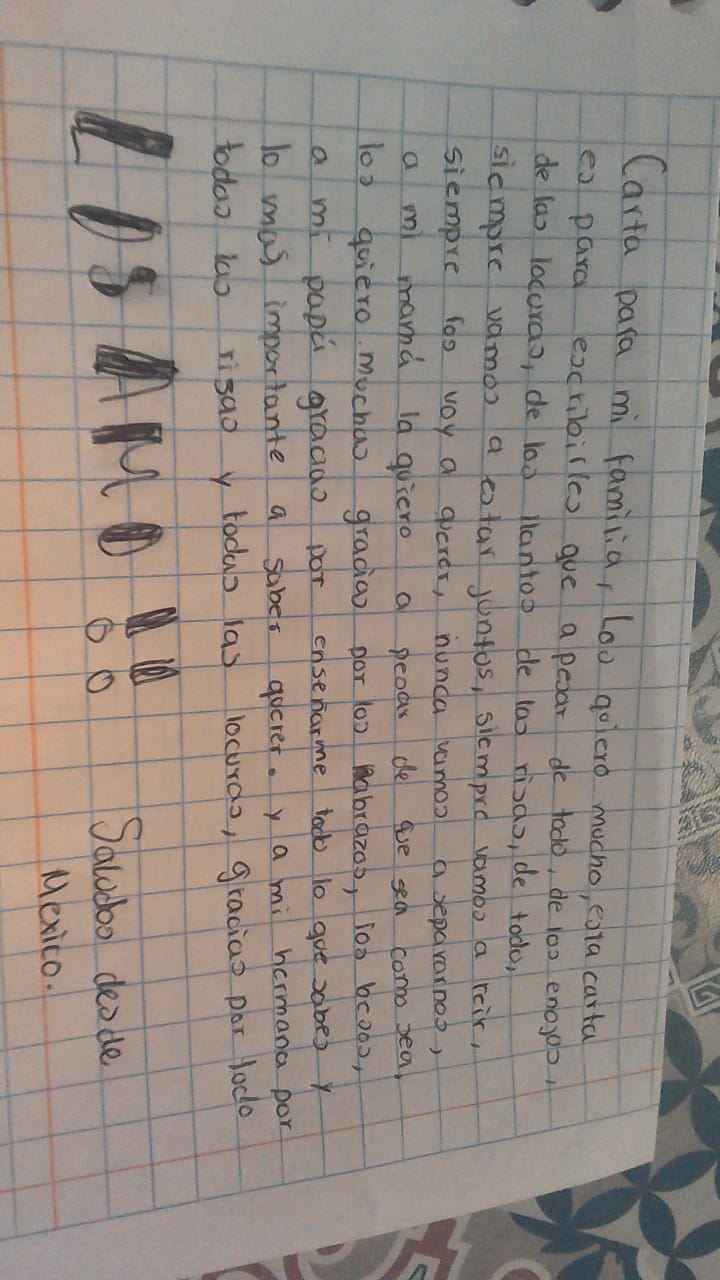 Carta para mi familia, Los quiero mucho, esta carta
es para escribirles que a pesar de todo, de los enojos,
de las locuras, de los llantos de las risas, de todo,
siempre vamos a estar juntos, siempre vamos a reir,
siempre los voy a querer, nunca vamos a separarnos,
a mi mamá la quiero a pesar de que sea como sea,
los quiero muchas gracias por los abrazos, los besos,
a mi papá gracias por enseñarme todo lo que sabes y
lo mas importante a saber querer. y a mi hermana por
todas las risas y todas las locuras, gracias por todo
LOS AMO !!
Saludos desde
Mexico.